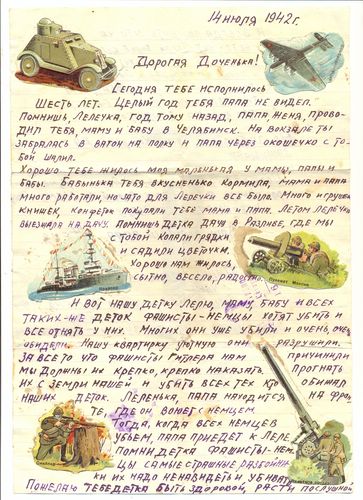 14 июля 1942г.
Дорогая Доченька!
Сегодня тебе исполнилось
шесть лет. Целый год тебя папа не видел.
Помнишь, Лелечка, год тому назад, папа, Женя, прово-
дил тебя, маму и бабу в Челябинск. На вокзале ты
забралась в вагон на полку и папа через окошечко с то-
бой шалил.
Хорошо тебе жилось моя маленькая у мамы, папы и
бабы. Бабынька тебя вкусненько кормила, мама и папа
много работали, но зато для Лелечки все было. Много игрушек
книшек, конфеток покупали тебе мама и папа. Летом Лелечка
выезжала на дачу. Помнишь детка дачу в Разливе, где мы
с тобой копали грядки
и садили цветочки.
Хорошо нам жилось,
сытно, весело, радостно.
Пулемет Максим
И вот нашу детку Лелю, маму, бабу и всех
таких-же деток фашисты-немцы хотят убить и
все отнять у них. Многих они уже убили и очень, очень
обидели. Нашу квартирку уютную они разрушили.
За все то что фашисты Гитлера нам причинили
мы должны их крепко, крепко наказать. Прогнать
их с земли нашей и убить всех тех кто обижал
наших деток. Леленька, папа находится на фрон
те, где он воюет с немцем.
Тогда, когда всех немцев
убьем, папа приедет к Леле
Помни детка фашисты-нем-
цы самые страшные разбойни-
ки их надо ненавидеть и убивать
Пожелаю тебе детка быть здоровой, расти послушной